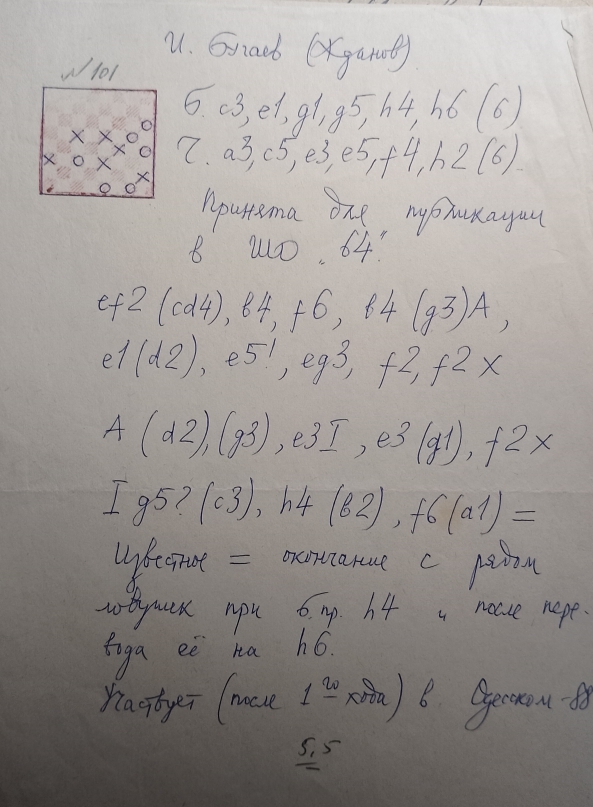 И. Бугаев (Жданов)
№101
б. c3, e1, g1, g5, h4, h6 (6)
Ч. a3, c5, e3, e5, f4, h2 (6).
Принята для публикации
в ШО „64".
ef2 (cd4), в4, f6, в4 (g3)A,
e1 (d2), e5!, eg3, f2, f2 x
A (d2), (g3), e3 I, e3 (g1), f2 x
I g5? (c3), h4 (в2), f6 (a1) =
Известное = окончание с рядом
ловушек при б. пр. h4 и после пере-
вода её на h6.
Участвует (после 1го хода) в Одесском-88
5,5